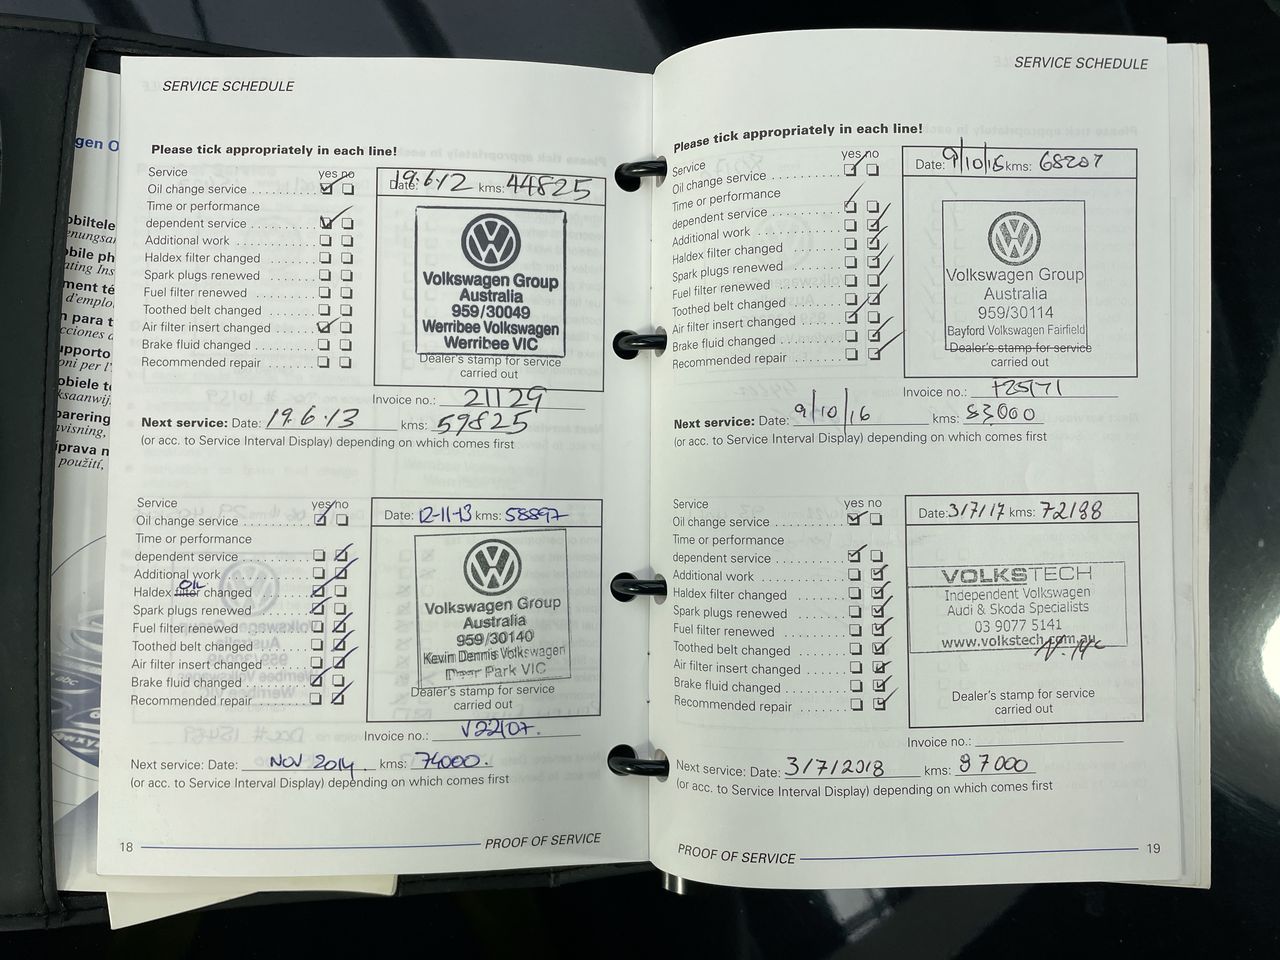 SERVICE SCHEDULE
Please tick appropriately in each line!
Service yes no
Oil change service
Time or performance
dependent service
Additional work
Haldex filter changed
Spark plugs renewed
Fuel filter renewed
Toothed belt changed
Air filter insert changed
Brake fluid changed
Recommended repair
Date: 19.6.12 kms: 44825
Volkswagen Group
Australia
959/30049
Werribee Volkswagen
Werribee VIC
Dealer's stamp for service
carried out
Invoice no.: 21129
Next service: Date: 19.6.13 kms: 59825
(or acc. to Service Interval Display) depending on which comes first
Service yes no
Oil change service
Time or performance
dependent service
Additional work
OIL
Haldex filter changed
Spark plugs renewed
Fuel filter renewed
Toothed belt changed
Air filter insert changed
Brake fluid changed
Recommended repair
Date: 12-11-13 kms: 58897
Volkswagen Group
Australia
959/30140
Kevin Dennis Volkswagen
Deer Park VIC
Dealer's stamp for service
carried out
Invoice no.: V22107.
Next service: Date: NOV 2014 kms: 74000.
(or acc. to Service Interval Display) depending on which comes first
18 PROOF OF SERVICE
SERVICE SCHEDULE
Please tick appropriately in each line!
Service yes no
Oil change service
Time or performance
dependent service
Additional work
Haldex filter changed
Spark plugs renewed
Fuel filter renewed
Toothed belt changed
Air filter insert changed
Brake fluid changed
Recommended repair
Date: 9/10/15 kms: 68207
Volkswagen Group
Australia
959/30114
Bayford Volkswagen Fairfield
Dealer's stamp for service
carried out
Invoice no.:
Next service: Date: 9/10/16 kms: 83,000
(or acc. to Service Interval Display) depending on which comes first
Service yes no
Oil change service
Time or performance
dependent service
Additional work
Haldex filter changed
Spark plugs renewed
Fuel filter renewed
Toothed belt changed
Air filter insert changed
Brake fluid changed
Recommended repair
Date: 3/7/17 kms: 72188
VOLKSTECH
Independent Volkswagen
Audi & Skoda Specialists
03 9077 5141
www.volkstech.com.au
Dealer's stamp for service
carried out
Invoice no.:
Next service: Date: 3/7/2018 kms: 87000
(or acc. to Service Interval Display) depending on which comes first
PROOF OF SERVICE 19